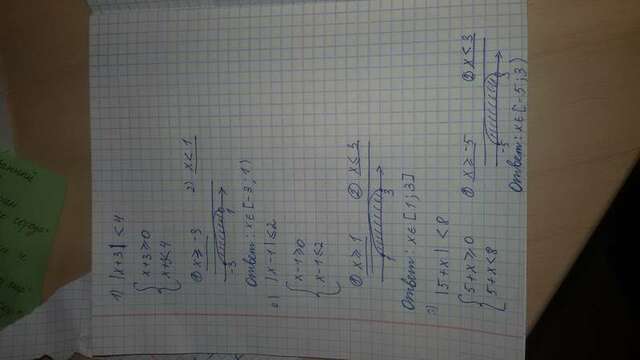 1) |x+3| < 4
{ x+3 ≥ 0
{ x+3 < 4
① x ≥ -3   2) x < 1
-3   1
Ответ: x ∈ [-3, 1)
2) |x-1| ≤ 2
{ x-1 ≥ 0
{ x-1 ≤ 2
① x ≥ 1   ② x ≤ 3
1   3
Ответ: x ∈ [1; 3]
3) |5+x| < 8
{ 5+x ≥ 0
{ 5+x < 8
① x ≥ -5   ② x < 3
-5   3
Ответ: x ∈ [-5; 3)